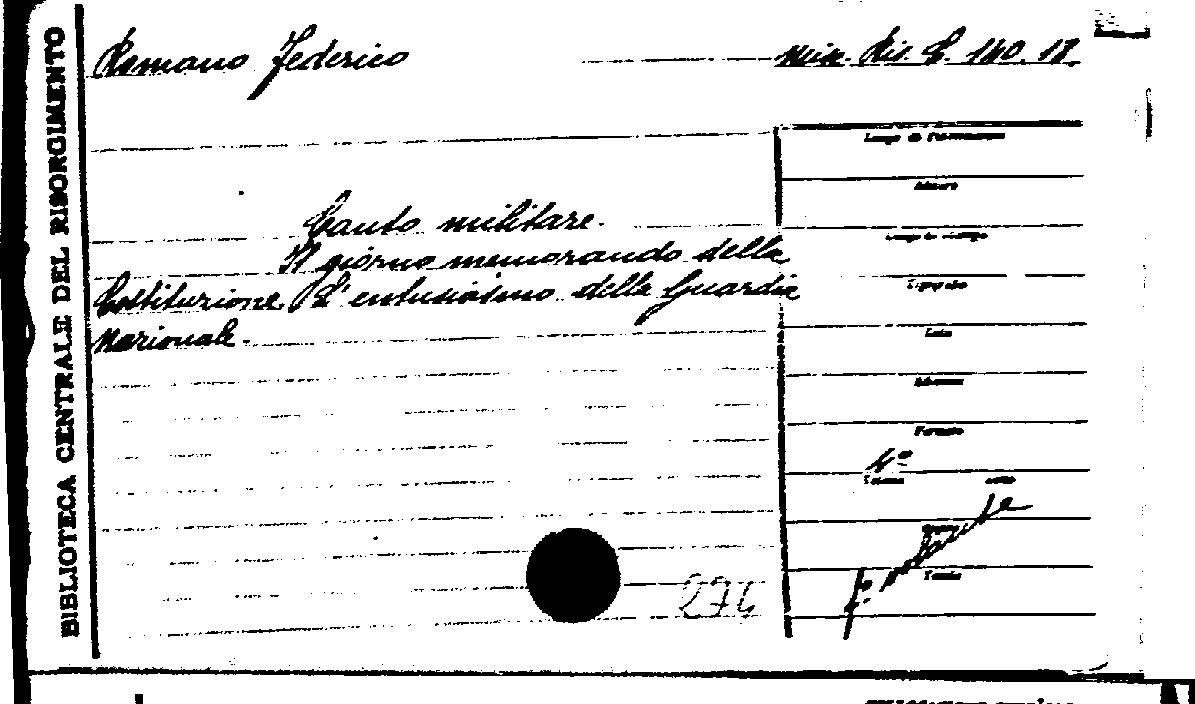 BIBLIOTECA CENTRALE DEL RISORGIMENTO
Romano Federico
Misc. Ris. C. 140. 17.
Canto militare.
Il giorno memorando della
Costituzione. L'entusiasmo della Guardia
Nazionale.
Numero
Luogo di stampa
Tipografo
Data
Edizione
Formato
4º
Volume
Tomo
274